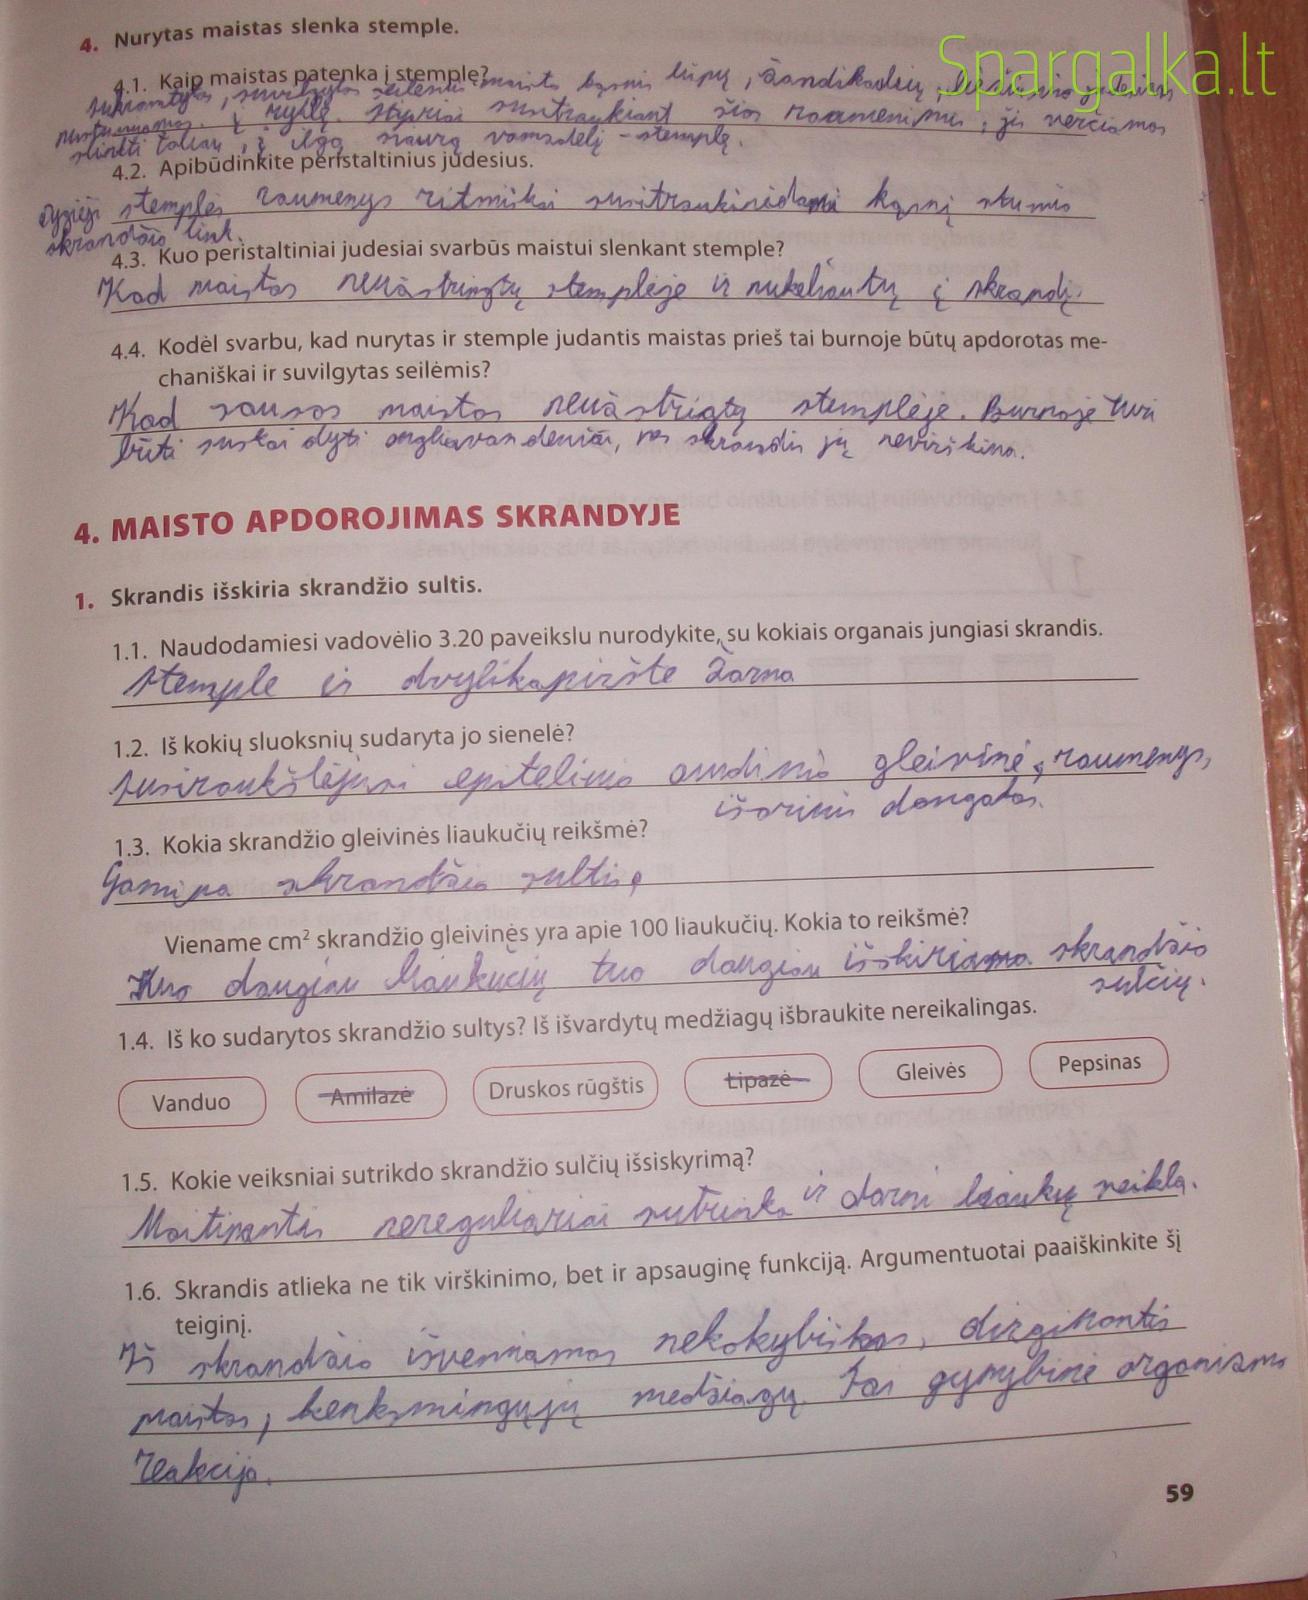 Spargalka.lt
4. Nurytas maistas slenka stemple.
4.1. Kaip maistas patenka į stemplę?
sukramtytas, suvilgytas seilėmis maisto kąsnis lūpų, žandikaulių,
nustumiamas į ryklę. Staigiai susitraukiant šios raumenims, jis verčiamas
slinkti toliau, į ilgą siaurą vamzdelį - stemplę.
4.2. Apibūdinkite peristaltinius judesius.
stemplės raumenys ritmiškai susitraukinėdami kąsnį stumia
skrandžio link.
4.3. Kuo peristaltiniai judesiai svarbūs maistui slenkant stemple?
Kad maistas neužstrigtų stemplėje ir nukeliautų į skrandį.
4.4. Kodėl svarbu, kad nurytas ir stemple judantis maistas prieš tai burnoje būtų apdorotas me-
chaniškai ir suvilgytas seilėmis?
Kad sausas maistas neužstrigtų stemplėje. Burnoje turi
būti suskaidyti angliavandeniai, nes skrandis jų nevirškina.
4. MAISTO APDOROJIMAS SKRANDYJE
1. Skrandis išskiria skrandžio sultis.
1.1. Naudodamiesi vadovėlio 3.20 paveikslu nurodykite, su kokiais organais jungiasi skrandis.
stemple ir dvylikapiršte žarna
1.2. Iš kokių sluoksnių sudaryta jo sienelė?
susiraukšlėjusi epitelinio audinio gleivinė, raumenys,
išorinis dangalas.
1.3. Kokia skrandžio gleivinės liaukučių reikšmė?
Gamina skrandžio sultis
Viename cm² skrandžio gleivinės yra apie 100 liaukučių. Kokia to reikšmė?
Kuo daugiau liaukučių tuo daugiau išskiriama skrandžio
sulčių.
1.4. Iš ko sudarytos skrandžio sultys? Iš išvardytų medžiagų išbraukite nereikalingas.
Vanduo Amilazė Druskos rūgštis Lipazė Gleivės Pepsinas
1.5. Kokie veiksniai sutrikdo skrandžio sulčių išsiskyrimą?
Maitinantis nereguliariai sutrinka ir darni liaukų veikla.
1.6. Skrandis atlieka ne tik virškinimo, bet ir apsauginę funkciją. Argumentuotai paaiškinkite šį
teiginį.
Iš skrandžio išvemiamas nekokybiškas, dirginantis
maistas, kenksmingųjų medžiagų. Tai gynybinė organizmo
reakcija.
59